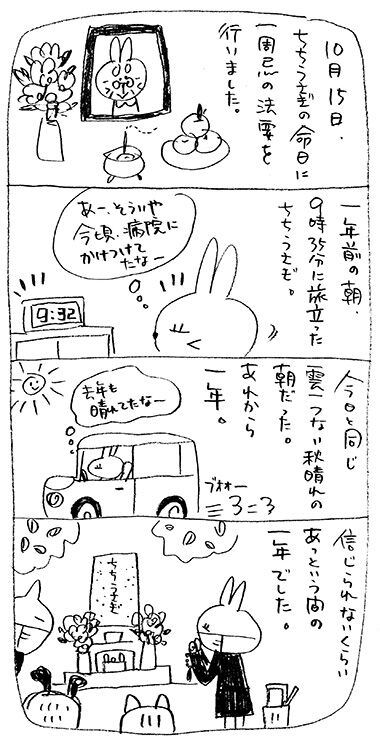 10月15日、
ちちうさぎの命日に
一周忌の法要を
行いました。
一年前の朝、
9時35分に旅立った
ちちうさぎ。
あー、そういや
今頃、病院に
かけつけて
たなー
9:32
今日と同じ
雲一つない秋晴れの
朝だった。
あれから
一年。
去年も
晴れてたなー
ブオオー
信じられないくらい
あっという間の
一年でした。
ちちうさぎ